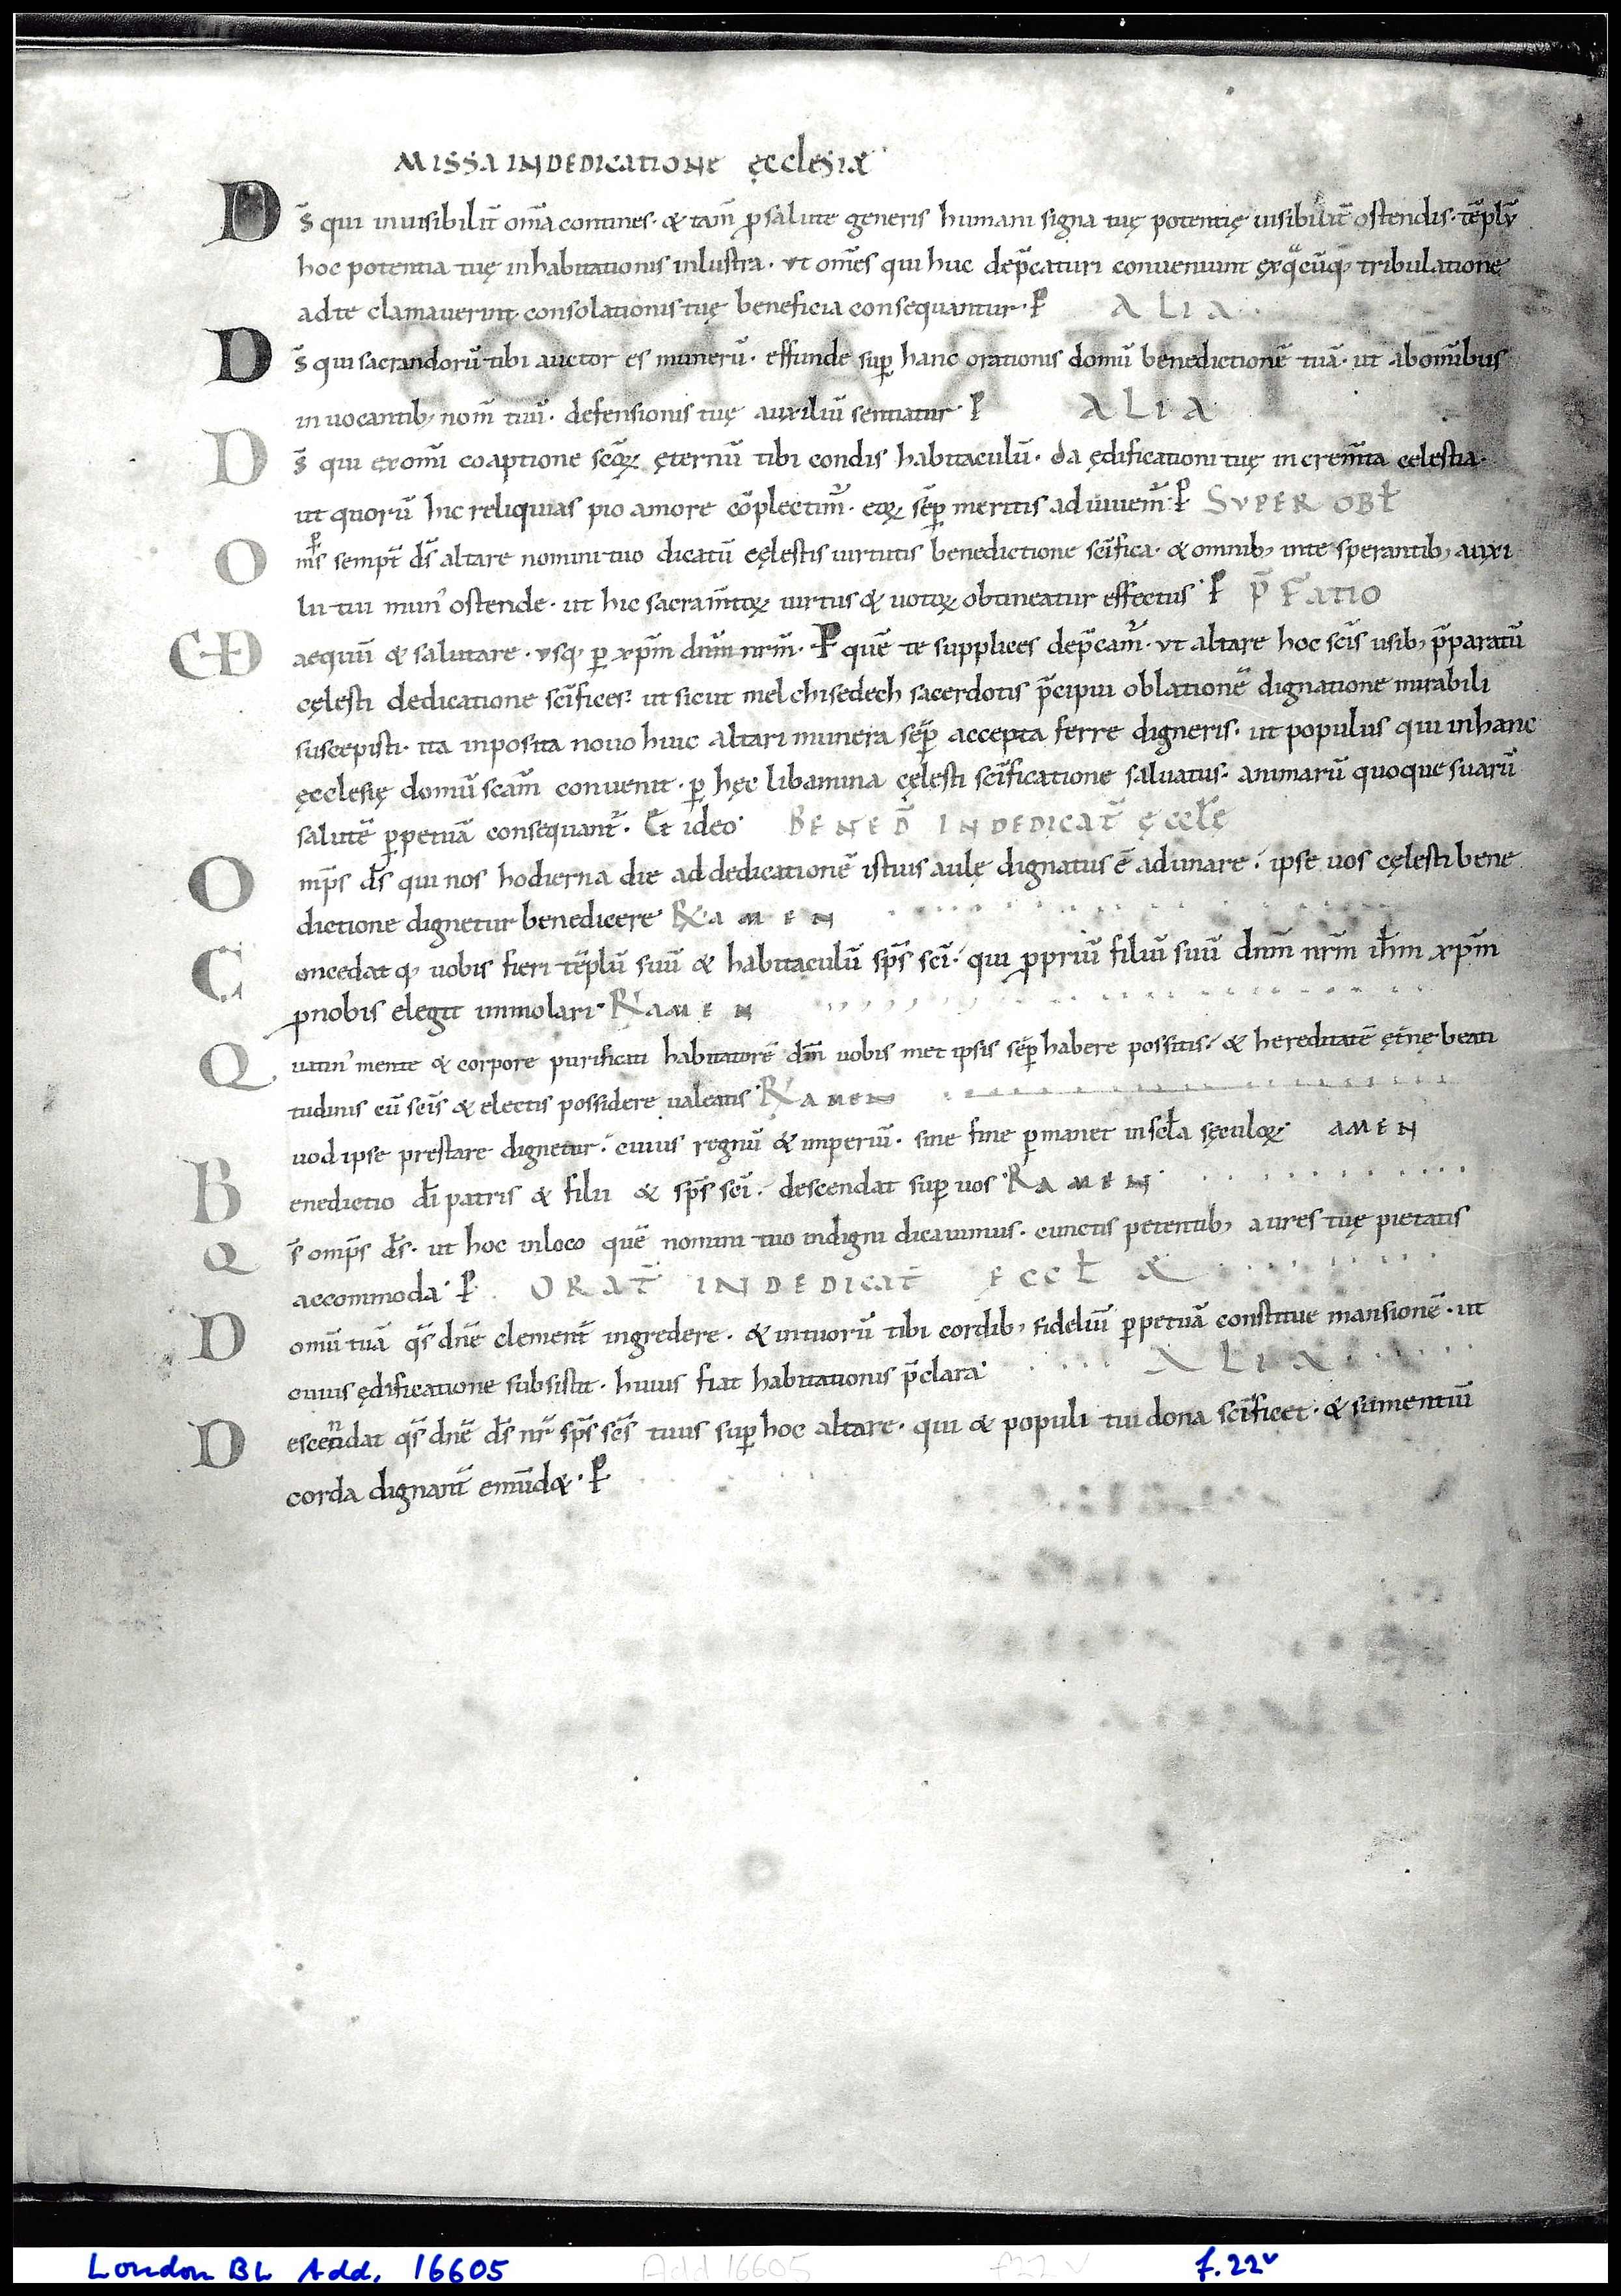 MISSA IN DEDICATIONE ęCCLESIAE
Ds̄ qui inuisibilit̄ om̄a contines· & tam̄ ꝓ salute generis humani signa tuę potentię uisibilit̄ ostendis· tēplū
hoc potentia tuę inhabitationis inlustra· ut om̄es qui huc dep̄caturi conueniunt ęx q̄cūq; tribulatione
ad te clamauerint consolationis tuę beneficia consequantur· P ALIA
Ds̄ qui sacrandorū tibi auctor es munerū· effunde sup̄ hanc orationis domū benedictionē tuā· ut ab om̄ibus
inuocantib; nom̄ tuū· defensionis tuę auxiliū sentiatur· P ALIA
Ds̄ qui ex om̄i coaptione sc̄oꝝ ęternū tibi condis habitaculū· da ędificationi tuę increm̄ta celestia·
ut quorū hic reliquias pio amore cōplectim̄· eoꝝ sēp meritis adiuuem̄· P SUPER OBL̄
Om̄ps sempt̄ ds̄ altare nomini tuo dicatū cęlestis uirtutis benedictione sc̄ifica· & omnib; in te sperantib; auxi
lii tui mun' ostende· ut hic sacram̄toꝝ uirtus & uotoꝝ obtineatur effectus· P P̄FATIO
UD aequū & salutare· usq; ꝑ xp̄m dn̄m nr̄m· P quē te supplices dep̄cam̄· ut altare hoc sc̄is usib; p̄paratū
cęlesti dedicatione sc̄ifices· ut sicut melchisedech sacerdotis p̄cipui oblationē dignatione mirabili
suscepisti· ita inposita nouo huic altari munera sēp accepta ferre digneris· ut populus qui in hanc
ęcclesię domū sc̄am conuenit· ꝑ hęc libamina cęlesti sc̄ificatione saluatus· animarū quoque suarū
salutē ꝑpetuā consequant̄· Et ideo· BENED̄ IN DEDICAT̄ ęCCLę
Omp̄s ds̄ qui nos hodierna die ad dedicationē istius aulę dignatus ē adunare· ipse uos cęlesti bene
dictione dignetur benedicere· R̷ AMEN
Concedat q; uobis fieri tēplū suū & habitaculū sp̄s sc̄i· qui ꝓpriū filiū suū dn̄m nr̄m ih̄m xp̄m
ꝓ nobis elegit immolari· R̷ AMEN
Quatin' mente & corpore purificati habitatorē dm̄ uobismet ipsis sēp habere possitis· & hereditatē ęt̄nę beati
tudinis cū sc̄is & electis possidere ualeatis· R̷ AMEN
uod ipse prestare dignetur· cuius regnū & imperiū· sine fine ꝑmanet in scl̄a sęculoꝝ· AMEN
Benedictio dī patris & filii & sp̄s sc̄i· descendat sup̄ uos· R̷ AMEN
Qs̄ omp̄s ds̄· ut hoc in loco quē nomini tuo indigni dicauimus· cunctis petentib; aures tuę pietatis
accommoda· P ORAT̄ IN DEDICAT̄ ECCL̄ &
Domū tuā qs̄ dn̄e clement̄ ingredere· & in tuorū tibi cordib; fideliū ꝑpetuā constitue mansionē· ut
cuius ędificatione subsistit· huius fiat habitationis p̄clara· ALIA
Descendat qs̄ dn̄e ds̄ nr̄ sp̄s sc̄s tuus sup̄ hoc altare· qui & populi tui dona sc̄ificet· & sumentiū
corda dignant̄ emūd&· P
London BL Add. 16605 Add 16605 f22v f.22v